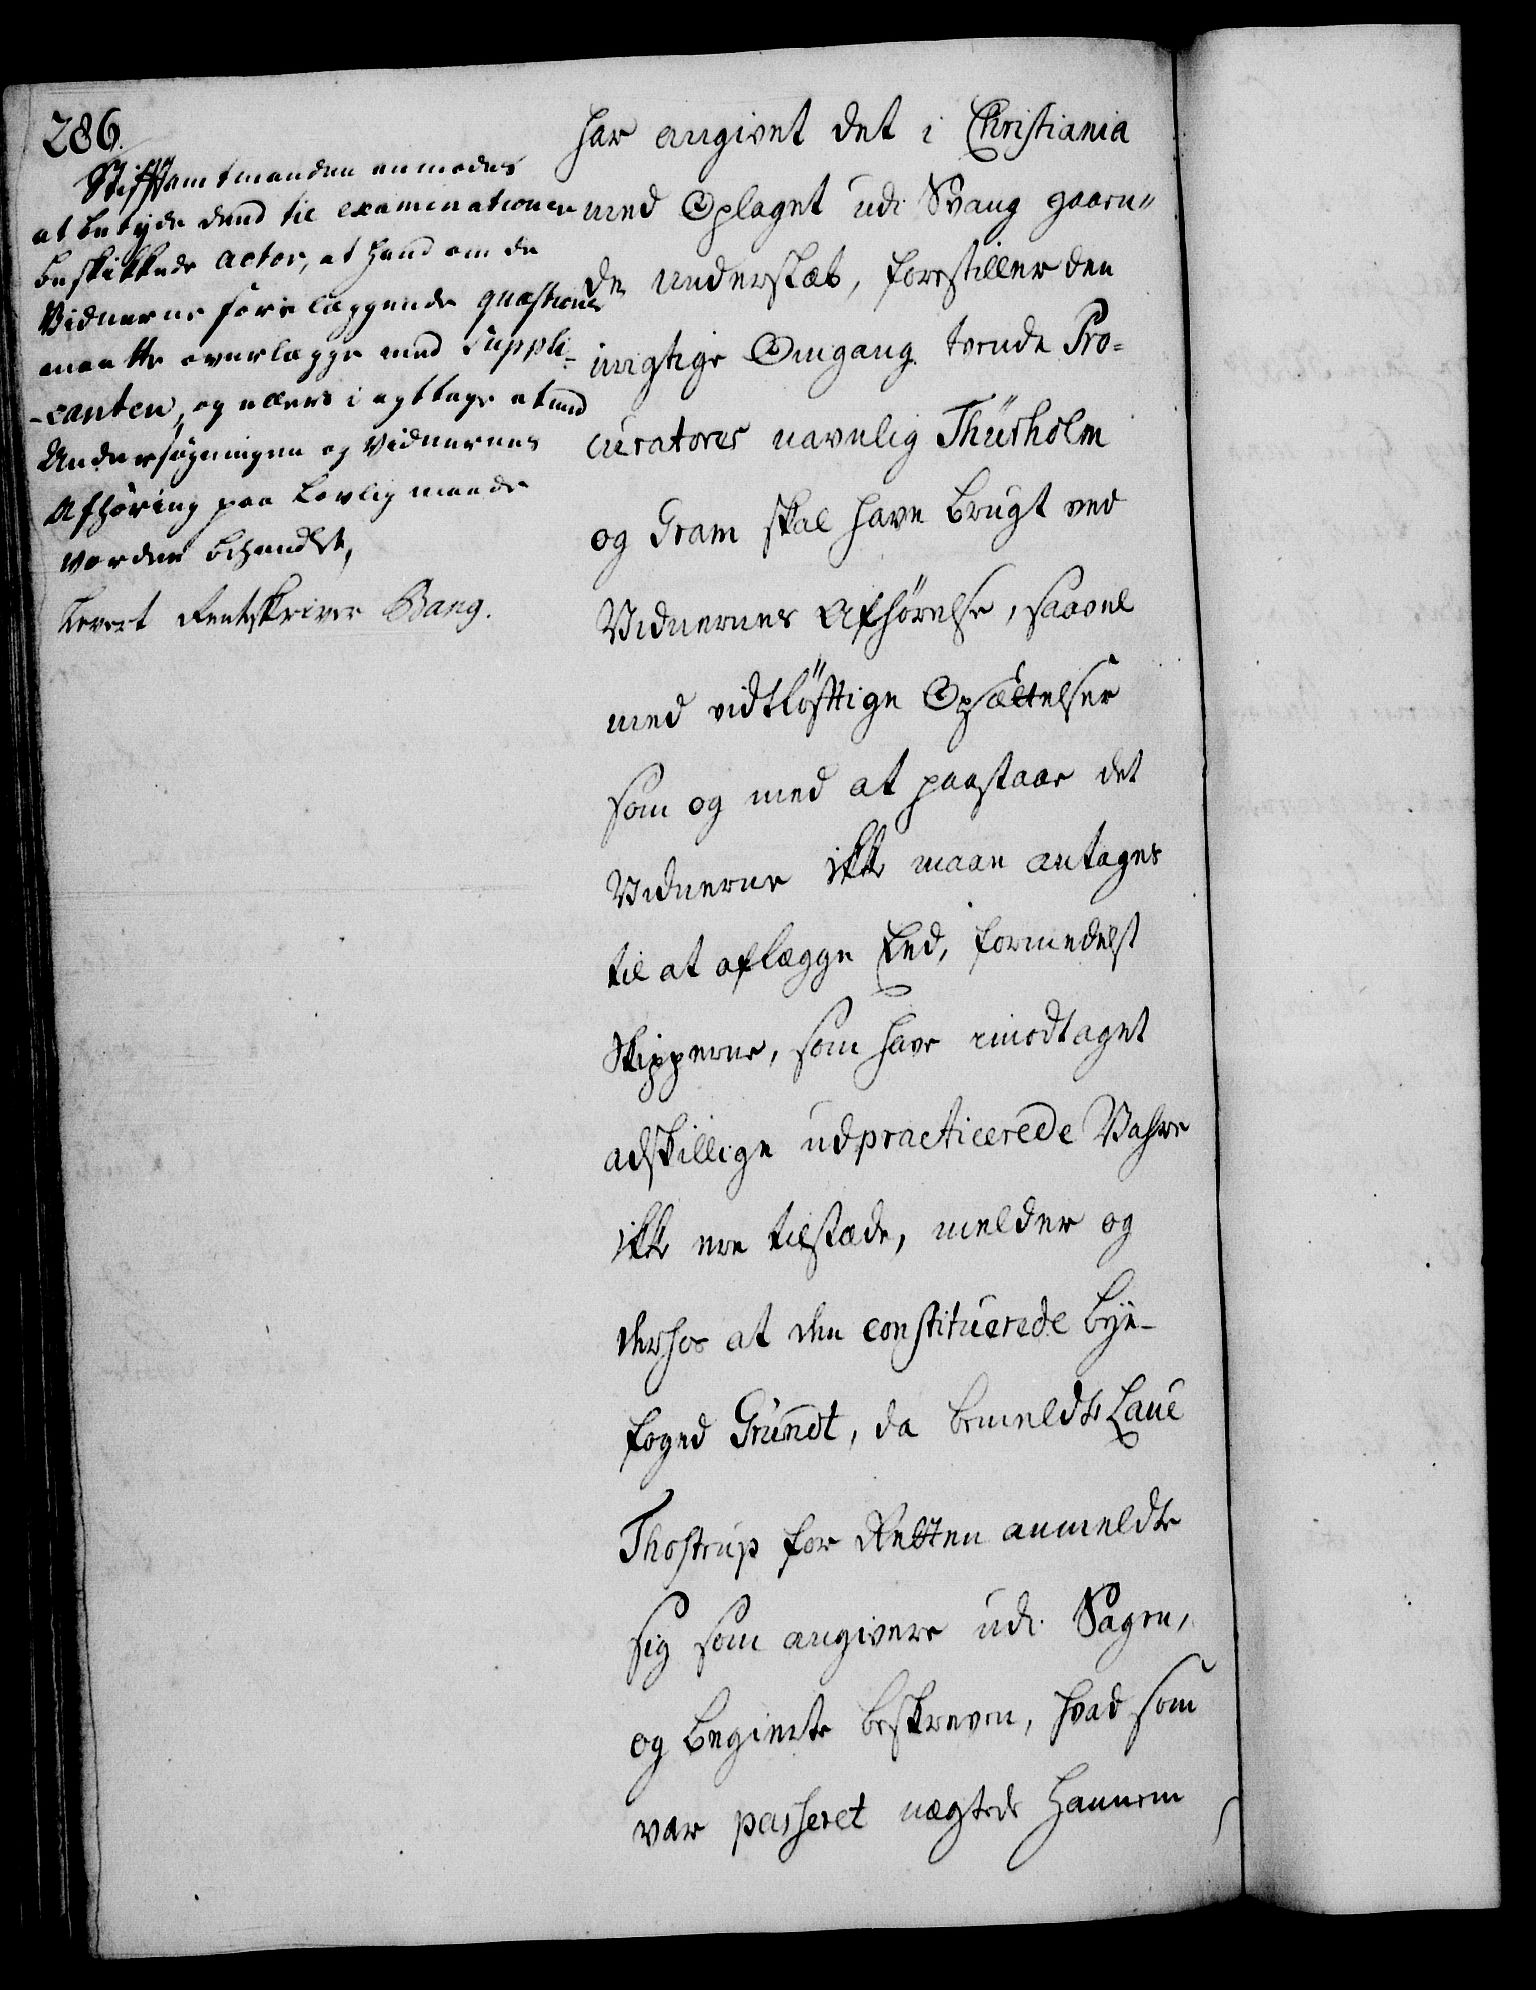 286.
Stiftamtmanden anmodes
at betyde dend til examinationen
beskikkede actor, at hand om de
Vidnerne forelæggende quæstioner
maatte overlægge med Suppli-
-canten, og ellers i agttage at med
Undersøgningen og Vidnernes
Afhøring paa lovlig maade
vorder behandlet,
Levert Rentskriver Bang.
har angivet det i Christiania
med Oplaget udi Svang gaaen"
de Underslæb, forestiller den
urigtige Omgang tvende Pro-
curatores navnlig Thürholm
og Gram skal have brugt ved
Vidnernes Afhørelse, saavel
med vidtløfttige Opsættelser
som og med at paastaae det
Vidnerne ikke maae antages
til at aflægge Eed, formedelst
Skipperne, som have imodtaget
adskillige udpracticerede Vahre
ikke ere tilstæde, melder og
derhos at den constituerede bye-
foged Grundt, da bemeldte Laue
Thostrup for Retten anmeldte
sig som angivere udi Sagen,
og begierte beskreven, hvad som
var passeret nægtede Hannem